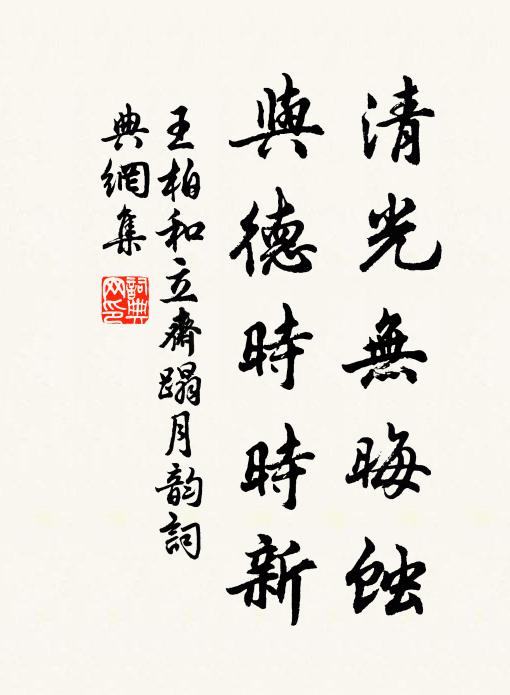 清光無晦蝕
與德時時新
王柏和立齋蹋月韵詞
典網集
詞典
网印